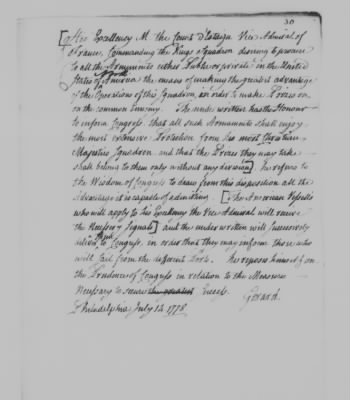 30
[His Excellency M. the Count d'Estaign Vice Admiral of
France, Commanding the Kings Squadron desiring to procure
to all the Armaments either Public or private in the United
States of North America the means of making the greatest advantage
of the Operations of this Squadron, in order to make Prizes on
on the common Enemy. The under written has the Honour
to inform Congress that all such Armaments shall enjoy
the most extensive Protection from his most Christian
Majesties Squadron and that the Prizes they may take
shall belong to them only without any division] he refers to
the Wisdom of Congress to draw from this disposition all the
Advantage it is capable of admitting. [The American Vessells
who will apply to his Excellency the Vice Admiral will receive
the Necessary Signals] and the under written will successively
deliver them to Congress, in order that they may inform those who
will sail from the different Ports. he reposes himself on
the Prudence of Congress in relation to the Measures
Necessary to secure the greatest Success. Gerard.
Philadelphia July 14 1778